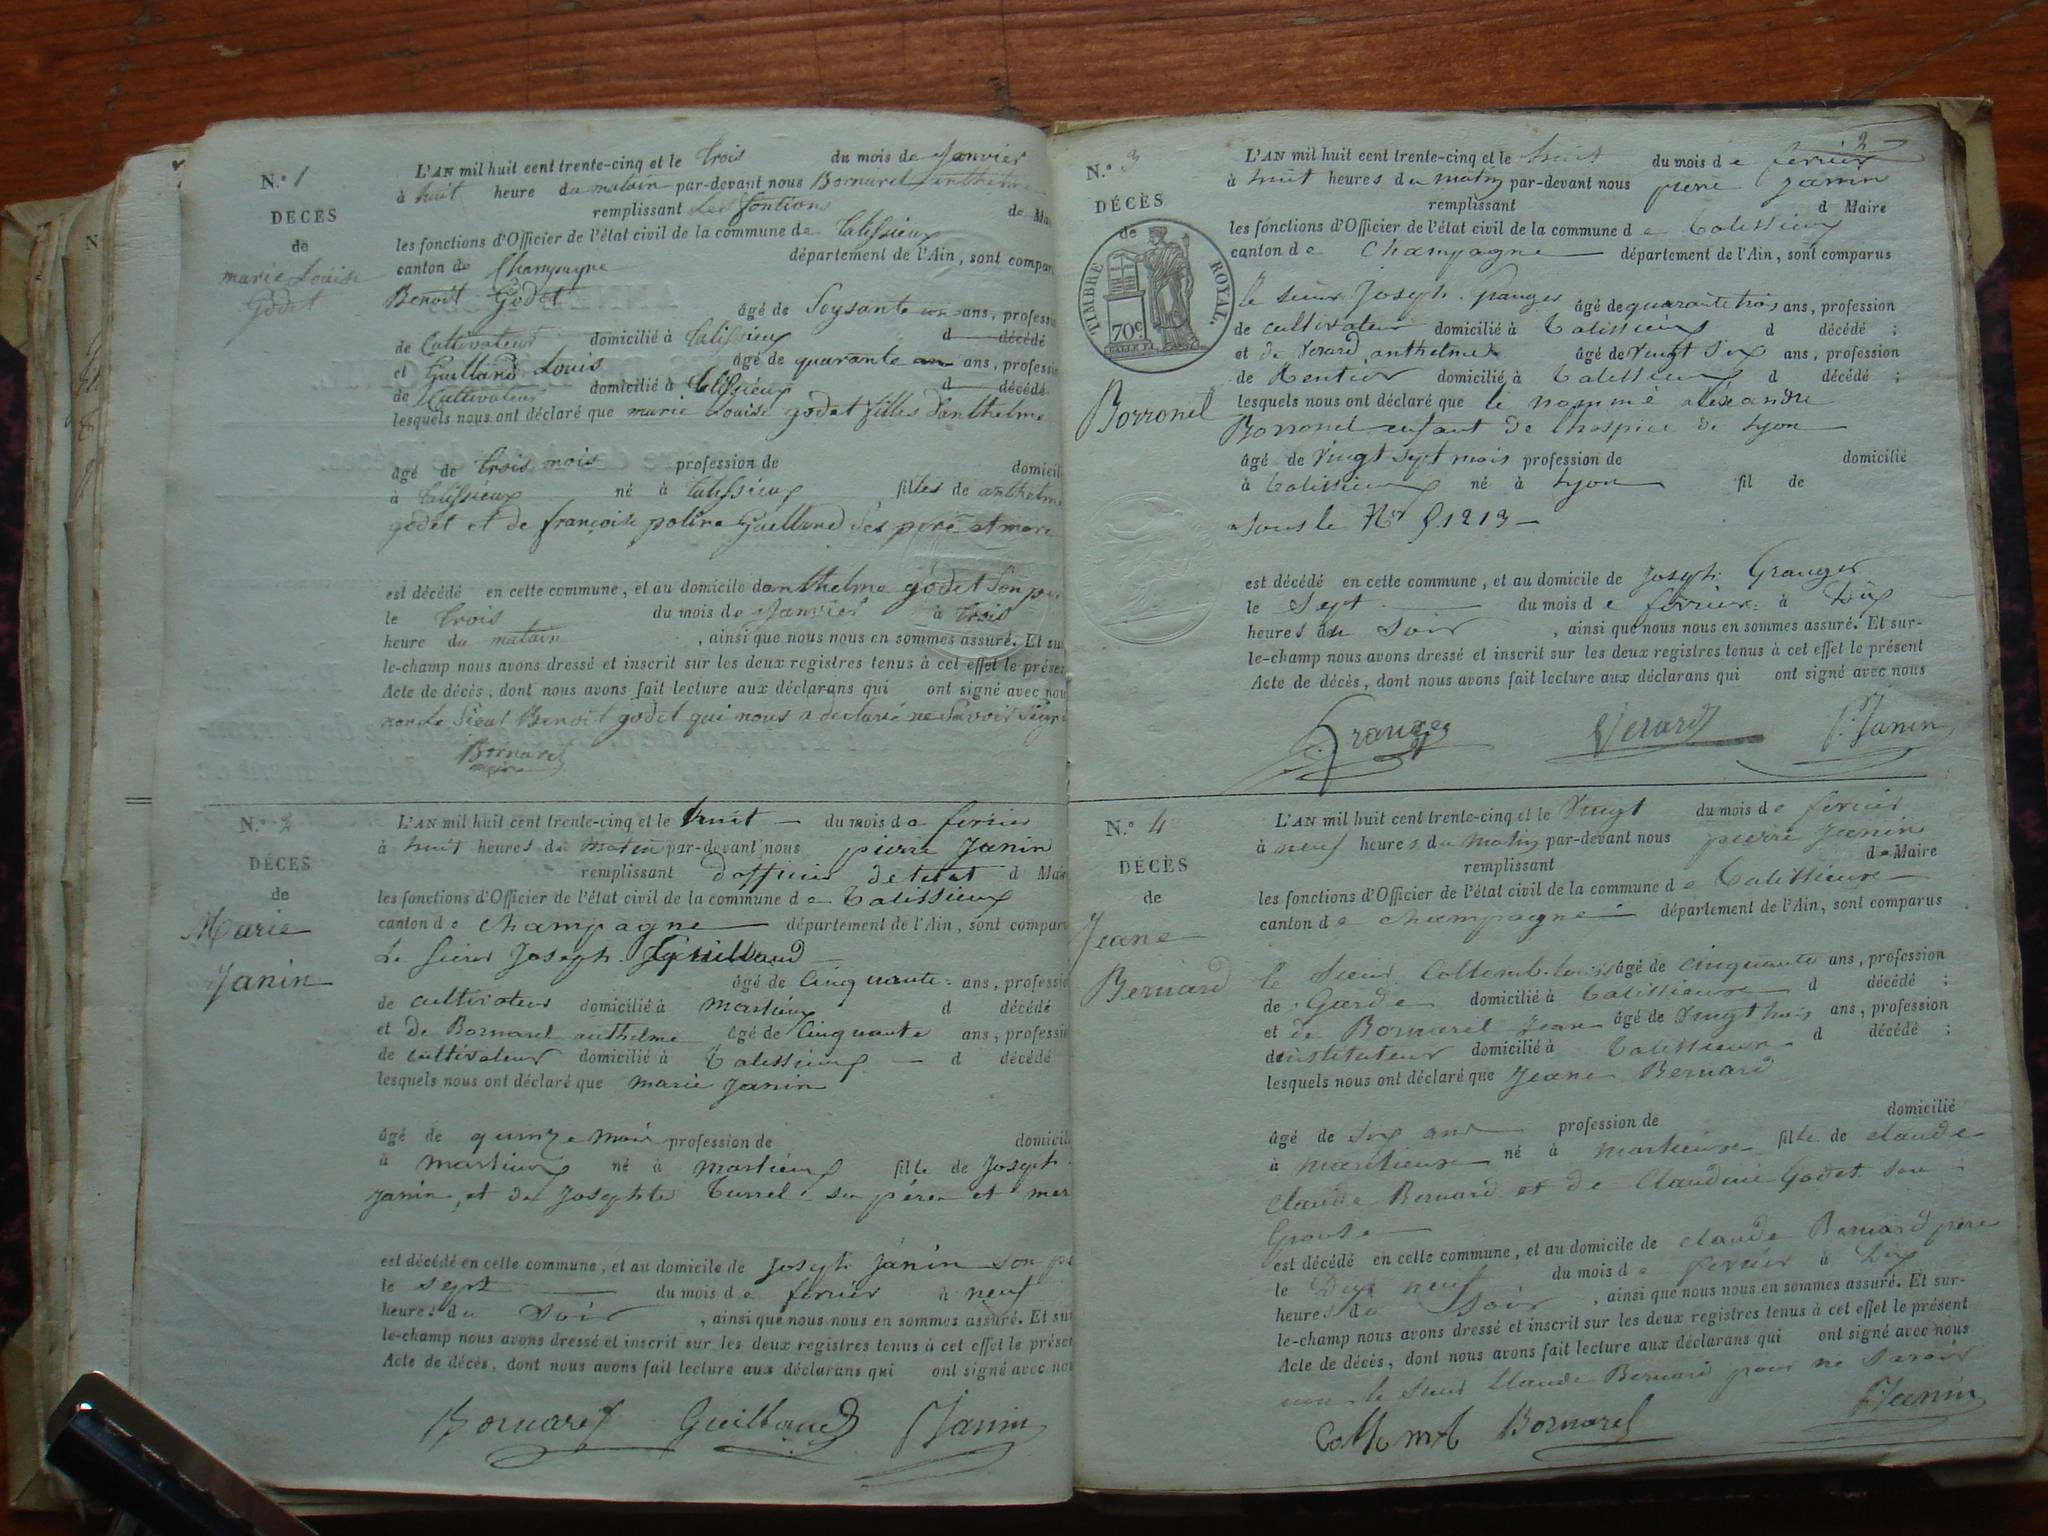 N.° 1
DÉCES
de
marie Louise
Godet
L'AN mil huit cent trente-cinq et le trois du mois de Janvier
à huit heure du matain par-devant nous Bornarel anthelme
remplissant Les fontions de Ma
les fonctions d'Officier de l'état civil de la commune de talissieux
canton de Champagne département de l'Ain, sont compar
Benoit Godet âgé de Soysante ans, professi
de Cultivateur domicilié à talissieux d décédé
et Guilland Louis âgé de quarante ans, professi
de Cultivateur domicilié à talissieux d décédé
lesquels nous ont déclaré que marie Louise godet filles danthelme
âgé de trois mois profession de domicili
à talissieux né à talissieux filles de anthelme
godet et de françoise poline Guilland Ses pere et mere
est décédé en cette commune, et au domicile danthelme godet Son pe
le trois du mois de Janvier à trois
heure du matain , ainsi que nous nous en sommes assuré. Et sur
le-champ nous avons dressé et inscrit sur les deux registres tenus à cet effet le présen
Acte de décès, dont nous avons fait lecture aux déclarans qui ont signé avec nou
non Le Sieur Benoit godet qui nous a declaré ne Savoir Signe
Bornarel
maire
N.° 2
DÉCES
de
Marie
Janin
L'AN mil huit cent trente-cinq et le huit du mois de ferier
à huit heures du matin par-devant nous pierre Janin
remplissant d'officier detetat d Mai
les fonctions d'Officier de l'état civil de la commune de talissieux
canton de champagne département de l'Ain, sont compar
Le sieur Joseph Guilland
âgé de cinquante ans, professi
de cultivateur domicilié à marlieux d décédé
et de Bornarel anthelme âgé de cinquante ans, professi
de cultivateur domicilié à talissieux d décédé
lesquels nous ont déclaré que marie Janin
âgé de quinze mois profession de domicili
à marlieux né à marlieux fille de Joseph
Janin, et de Josephte turrel su père et mer
est décédé en cette commune, et au domicile de Joseph Janin son pe
le sept du mois de ferier à neuf
heures du soir , ainsi que nous nous en sommes assuré. Et sur
le-champ nous avons dressé et inscrit sur les deux registres tenus à cet effet le présen
Acte de décès, dont nous avons fait lecture aux déclarans qui ont signé avec nou
Bornarel Guilland P Janin
2
N.° 3
DÉCÈS
de
TIMBRE ROYAL.
70c
Borronel
L'AN mil huit cent trente-cinq et le huit du mois de ferier
à huit heures du matin par-devant nous pierre Janin
remplissant d Maire
les fonctions d'Officier de l'état civil de la commune de talissieux
canton de Champagne département de l'Ain, sont comparus
le sieur Joseph granger âgé de quarante trois ans, profession
de cultivateur domicilié à talissieux d décédé ;
et de Verard anthelme âgé de vingt six ans, profession
de Rentier domicilié à talissieux d décédé ;
lesquels nous ont déclaré que le nommé alexandre
Borronel enfant de lhospice de lyon
âgé de vingt sept mois profession de domicilié
à talissieux né à lyon fil de
sous le No 51213
est décédé en cette commune, et au domicile de Joseph Granger
le sept du mois de ferier à Dix
heures du soir , ainsi que nous nous en sommes assuré. Et sur-
le-champ nous avons dressé et inscrit sur les deux registres tenus à cet effet le présent
Acte de décès, dont nous avons fait lecture aux déclarans qui ont signé avec nous
Granger Verard P. Janin
N.° 4
DÉCÈS
de
Jeane
Bernard
L'AN mil huit cent trente-cinq et le vingt du mois de ferier
à neuf heures du matin par-devant nous pierre Janin
remplissant de Maire
les fonctions d'Officier de l'état civil de la commune de talissieux
canton de champagne département de l'Ain, sont comparus
le sieur Collomb louis âgé de cinquante ans, profession
de Garde domicilié à talissieux d décédé ;
et de Bornarel Jean âgé de vingt huis ans, profession
de institateur domicilié à talissieux d décédé ;
lesquels nous ont déclaré que Jeane Bernard
âgé de six ans profession de domicilié
à marlieux né à marlieux fille de claude
claude Bernard et de Claudine Godet son
Epouse
est décédé en cette commune, et au domicile de claude Bernard pere
le Dix neuf du mois de ferier à Dix
heures du soir , ainsi que nous nous en sommes assuré. Et sur-
le-champ nous avons dressé et inscrit sur les deux registres tenus à cet effet le présent
Acte de décès, dont nous avons fait lecture aux déclarans qui ont signé avec nous
non le sieur Claude Bernard pour ne savoir
Collomb Bornarel P Janin